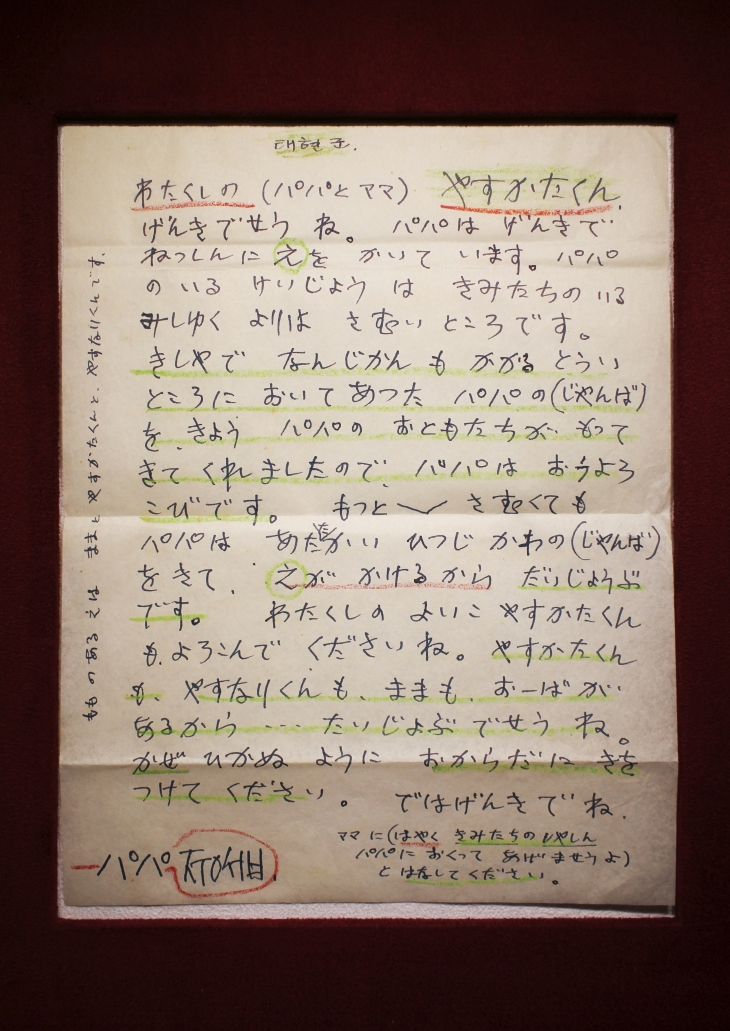 태현군.
わたくしの (パパとママ) やすかたくん.
げんきでせう ね。 パパは げんきで
ねっしんに えを かいて います。 パパ
の いる けいじょう は きみたちの いる
みしゆく よりは さむい ところです。
きしやで なんじかん も かかる とうい
ところに おいて あつた パパの(じゃんば)
を きょう パパの おともたちが もって
きて くれましたので パパは おうよろ
こびです。 もっと〱 さむくても
パパは あたたかい ひつじ かわの(じゃんば)
をきて、 えが かけるから だいじょうぶ
です。 わたくしの よいこ やすかたくん
も よろこんで くださいね。 やすかたくん
も、やすなりくんも、ままも、おーばが
あるから‥‥ たいじょぶ でせう ね。
かぜ ひかぬ ように おからだに きを
つけて ください。 ではげんきで ね.
ママに(はやく きみたちの しやしん
パパに おくって あげませうよ)
と はなしてください。
パパ ㅈㅜㅇㅅㅓㅂ.
もものある えは ままと やすかたくんと、やすなりくんです.